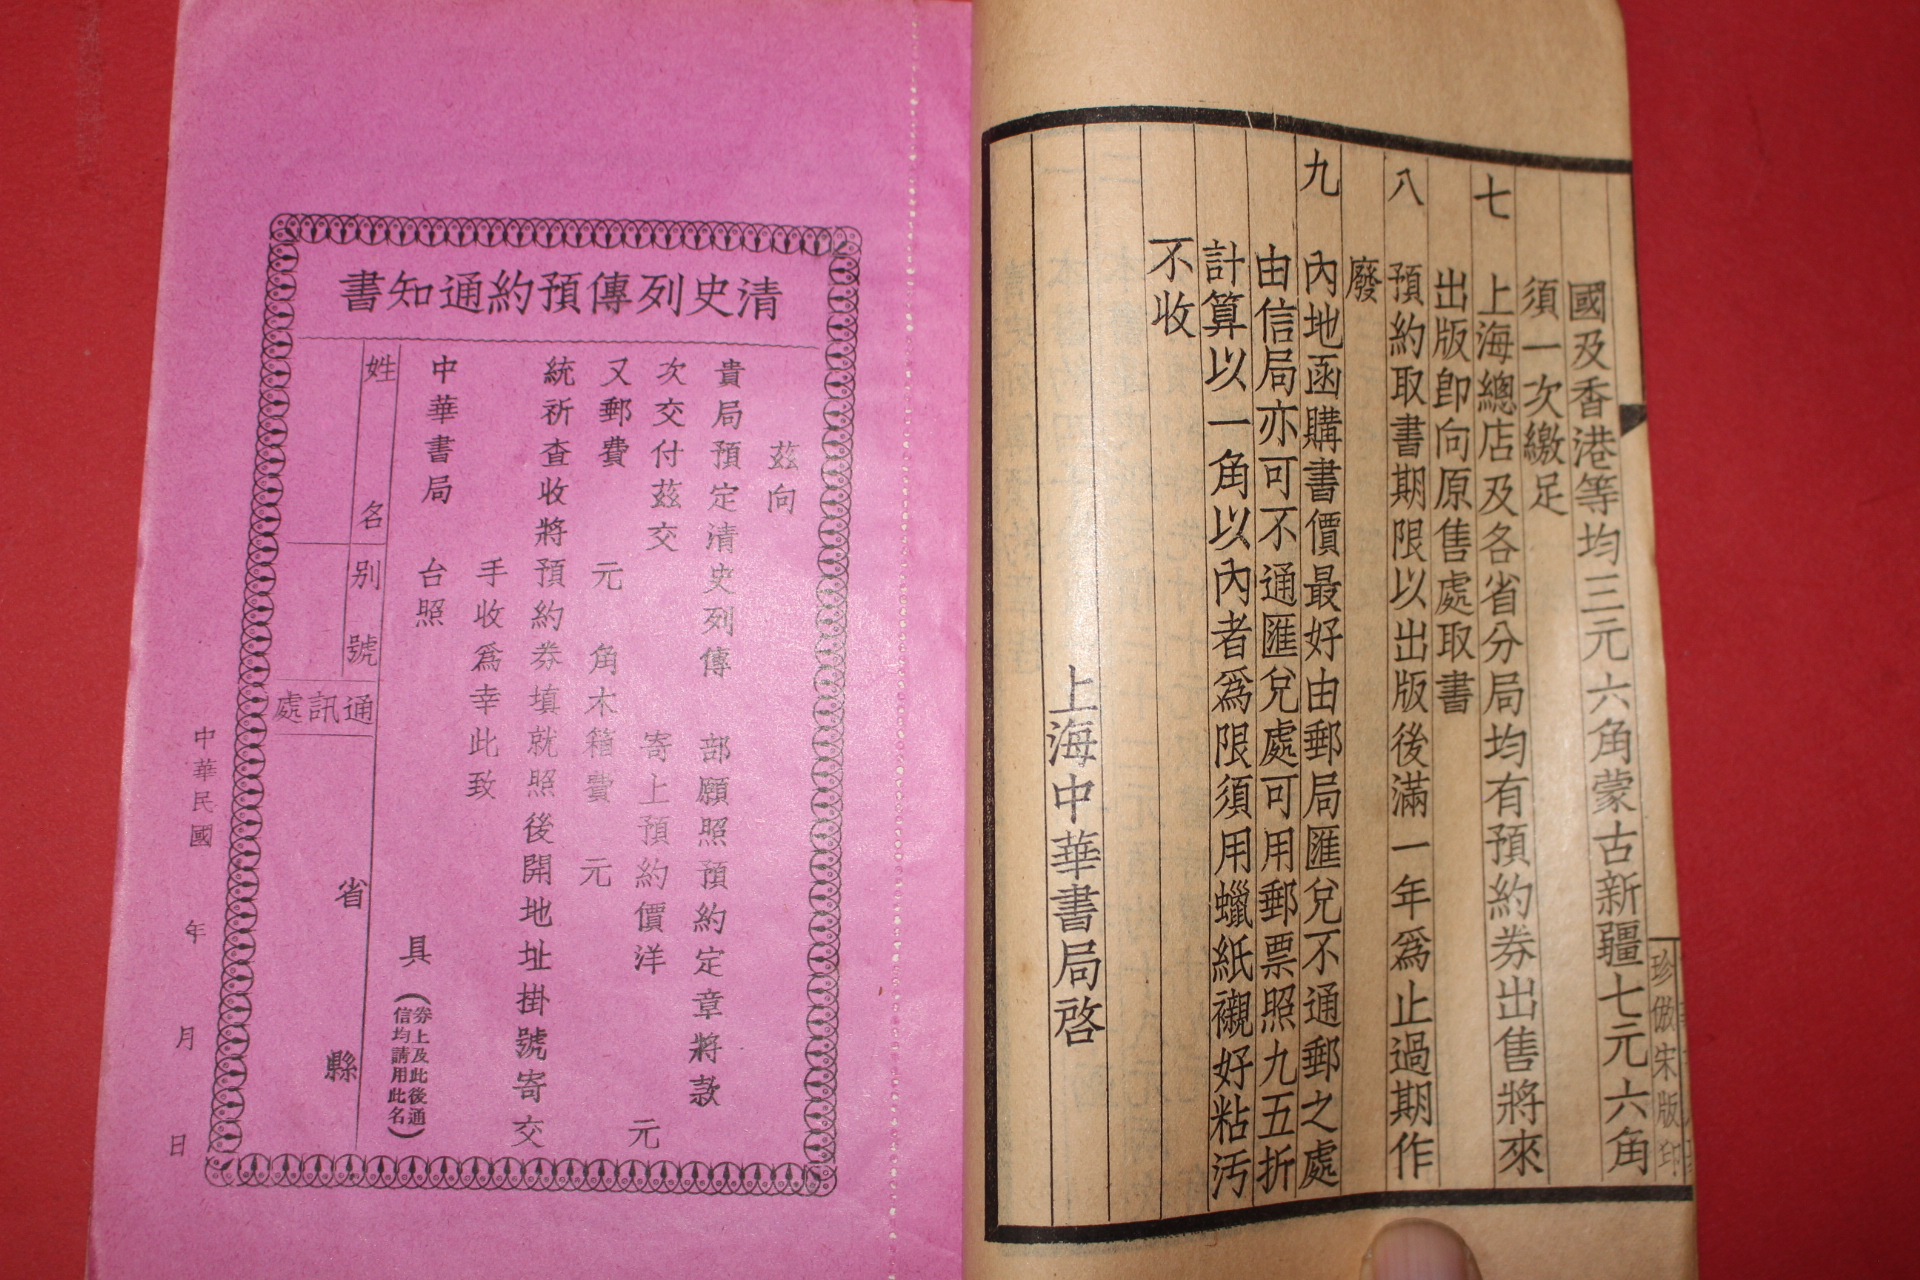 國及香港等均三元六角蒙古新疆七元六角
須一次繳足
七　上海總店及各省分局均有預約券出售將來
出版即向原售處取書
八　預約取書期限以出版後滿一年為止過期作
廢
九　內地函購書價最好由郵局匯兌不通郵之處
由信局亦可不通匯兌處可用郵票照九五折
計算以一角以內者為限須用蠟紙襯好粘污
不收
上海中華書局啓
珍倣宋版印
清史列傳預約通知書
茲向
貴局預定清史列傳　部願照預約定章將款
次交付茲交　寄上預約價洋　元
又郵費　元　角木箱費　元
統祈查收將預約券填就照後開地址掛號寄交
手收爲幸此致
中華書局　台照
具（券上及此後通
信均請用此名）
姓　名
別　號
通訊處
省　縣
中華民國　年　月　日